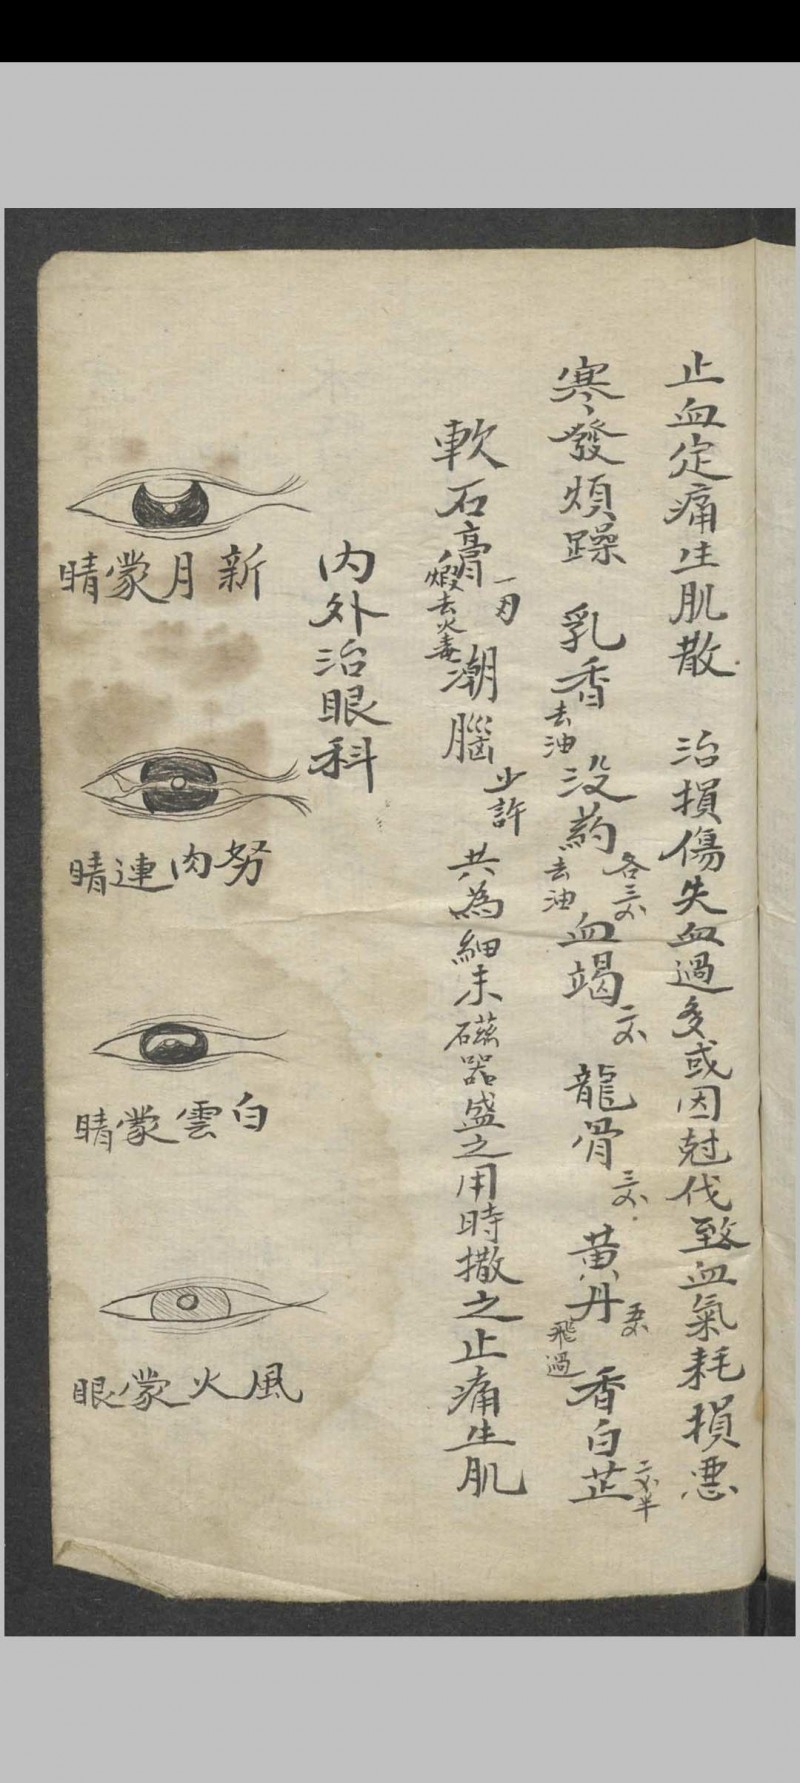 止血定痛生肌散 治損傷失血過多或因尅伐致血氣耗損惡
寒發煩躁 乳香去油 没药去油 各三 血竭二 龍骨三 黄丹飛過 香白芷二半
軟石膏一两煅去火毒 潮腦少許 共為細末磁器盛之用時撒之止痛生肌
内外治眼科
新月蒙睛
努肉連睛
白雲蒙睛
風火蒙眼